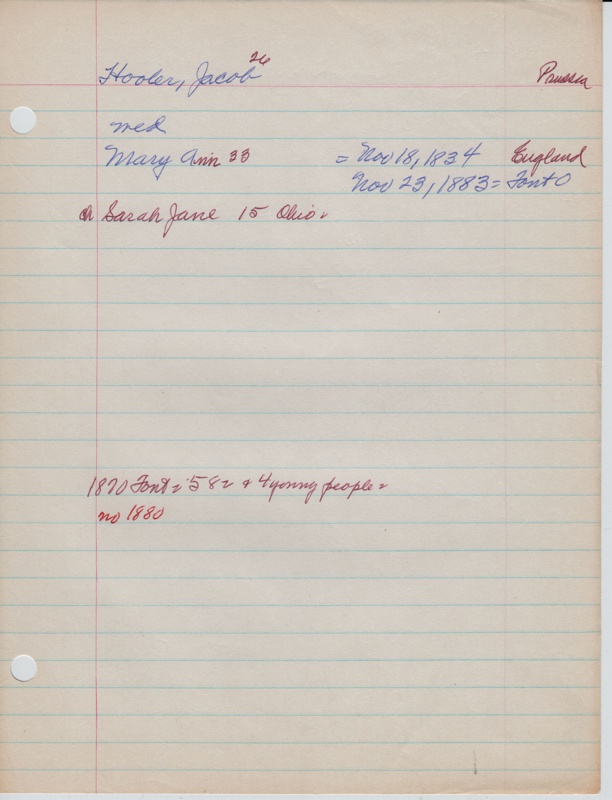 Hooler, Jacob 26 Prussia
med
Mary Ann 33 = Nov 18, 1834 England
Nov 23, 1883 = Font O
ch Sarah Jane 15 Ohio
1870 Font = 582 + 4 young people =
no 1880